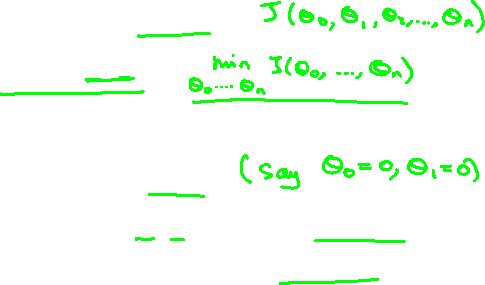 J(θ₀, θ₁, θ₂, ..., θₙ)
min J(θ₀, ..., θₙ)
θ₀ ..... θₙ
(say θ₀ = 0, θ₁ = 0)